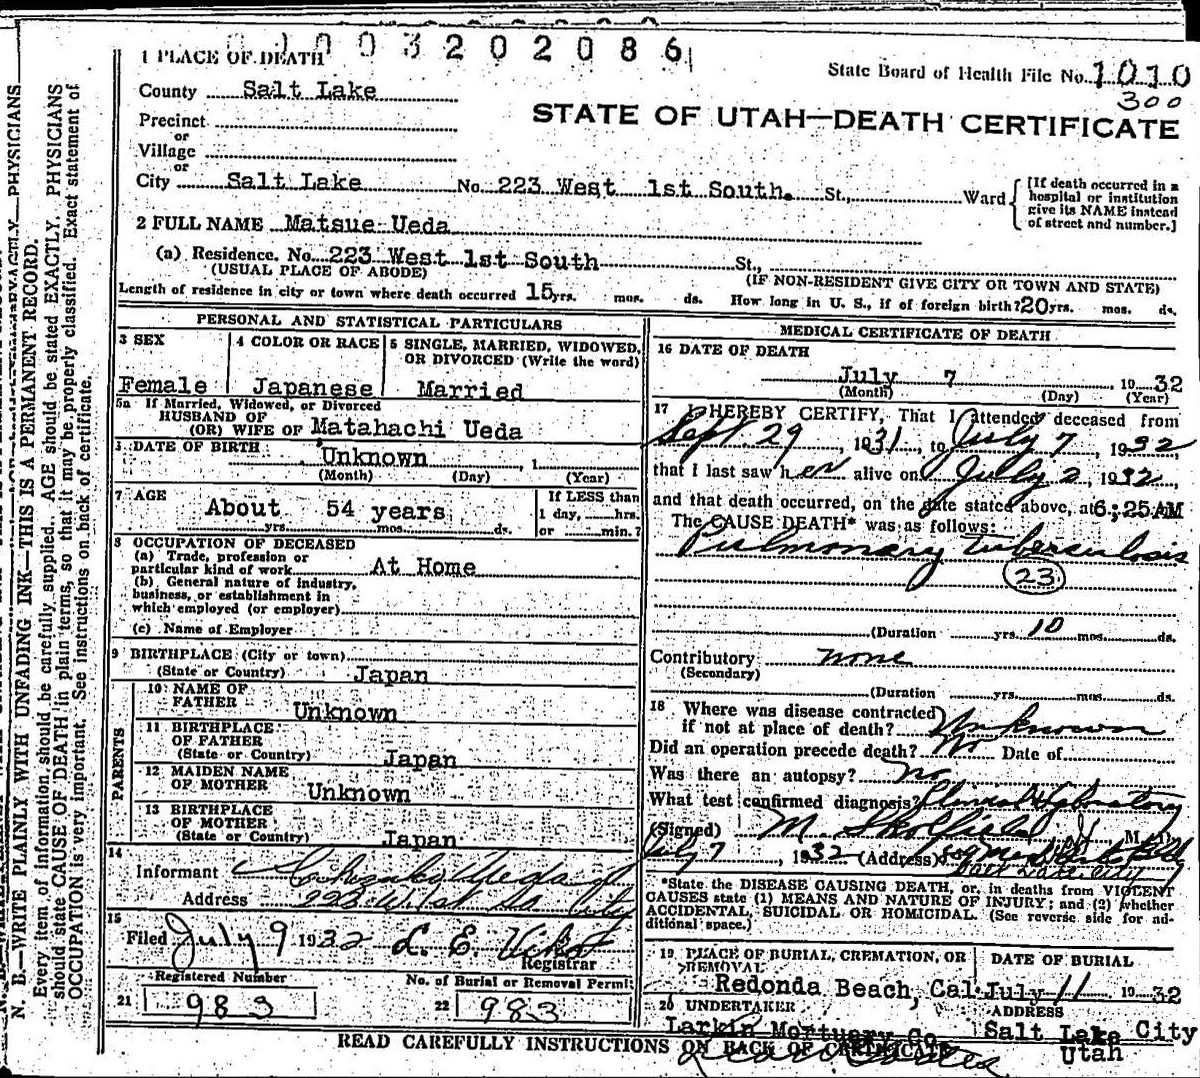 0100320208 6
1 PLACE OF DEATH
State Board of Health File No. 1010
300
County Salt Lake
STATE OF UTAH—DEATH CERTIFICATE
Precinct
or
Village
or
City Salt Lake No. 223 West 1st South. St., Ward
[If death occurred in a
hospital or institution
give its NAME instead
of street and number.]
2 FULL NAME Matsue Ueda
(a) Residence. No. 223 West 1st South St.,
(USUAL PLACE OF ABODE) (IF NON-RESIDENT GIVE CITY OR TOWN AND STATE)
Length of residence in city or town where death occurred 15 yrs. mos. ds. How long in U. S., if of foreign birth? 20 yrs. mos. ds.
PERSONAL AND STATISTICAL PARTICULARS
3 SEX
Female
4 COLOR OR RACE
Japanese
5 SINGLE, MARRIED, WIDOWED,
OR DIVORCED (Write the word)
Married
5a If Married, Widowed, or Divorced
HUSBAND OF
(OR) WIFE OF Matahachi Ueda
DATE OF BIRTH
Unknown , 1
(Month) (Day) (Year)
7 AGE
About 54 years
yrs. mos. ds.
If LESS than
1 day, hrs.
or min.?
8 OCCUPATION OF DECEASED
(a) Trade, profession or
particular kind of work At Home
(b) General nature of industry,
business, or establishment in
which employed (or employer)
(c) Name of Employer
9 BIRTHPLACE (City or town)
(State or Country) Japan
PARENTS
10 NAME OF
FATHER Unknown
11 BIRTHPLACE
OF FATHER
(State or Country) Japan
12 MAIDEN NAME
OF MOTHER Unknown
13 BIRTHPLACE
OF MOTHER
(State or Country) Japan
14
Informant Ueda
Address 223 W. 1st So. City
15
Filed July 9 1932 L. E. Viko
Registrar
Registered Number
21 983
No. of Burial or Removal Permit
22 983
MEDICAL CERTIFICATE OF DEATH
16 DATE OF DEATH
July 7 , 19 32
(Month) (Day) (Year)
17 I HEREBY CERTIFY, That I attended deceased from
Sept. 29 , 1931, to July 7 , 1932,
that I last saw her alive on July 2 , 1932,
and that death occurred, on the date stated above, at 6:25 AM
The CAUSE DEATH* was as follows:
Pulmonary tuberculosis
23
(Duration yrs. 10 mos. ds.
Contributory none
(Secondary)
(Duration yrs. mos. ds.
18 Where was disease contracted
if not at place of death? Unknown
Did an operation precede death? No Date of
Was there an autopsy? no
What test confirmed diagnosis? Laboratory
(Signed) M. M. D.
July 7 , 1932 (Address)
Salt Lake City
*State the DISEASE CAUSING DEATH, or, in deaths from VIOLENT
CAUSES state (1) MEANS AND NATURE OF INJURY; and (2) whether
ACCIDENTAL, SUICIDAL OR HOMICIDAL. (See reverse side for ad-
ditional space.)
19 PLACE OF BURIAL, CREMATION, OR
REMOVAL
Redonda Beach, Cal.
DATE OF BURIAL
July 11 19 32
20 UNDERTAKER
Larkin Mortuary Co
ADDRESS
Salt Lake City
Utah
READ CAREFULLY INSTRUCTIONS ON BACK OF CERTIFICATE
N. B.—WRITE PLAINLY WITH UNFADING INK—THIS IS A PERMANENT RECORD.
Every item of information should be carefully supplied. AGE should be stated EXACTLY. PHYSICIANS
should state CAUSE OF DEATH in plain terms, so that it may be properly classified. Exact statement of
OCCUPATION is very important. See instructions on back of certificate.